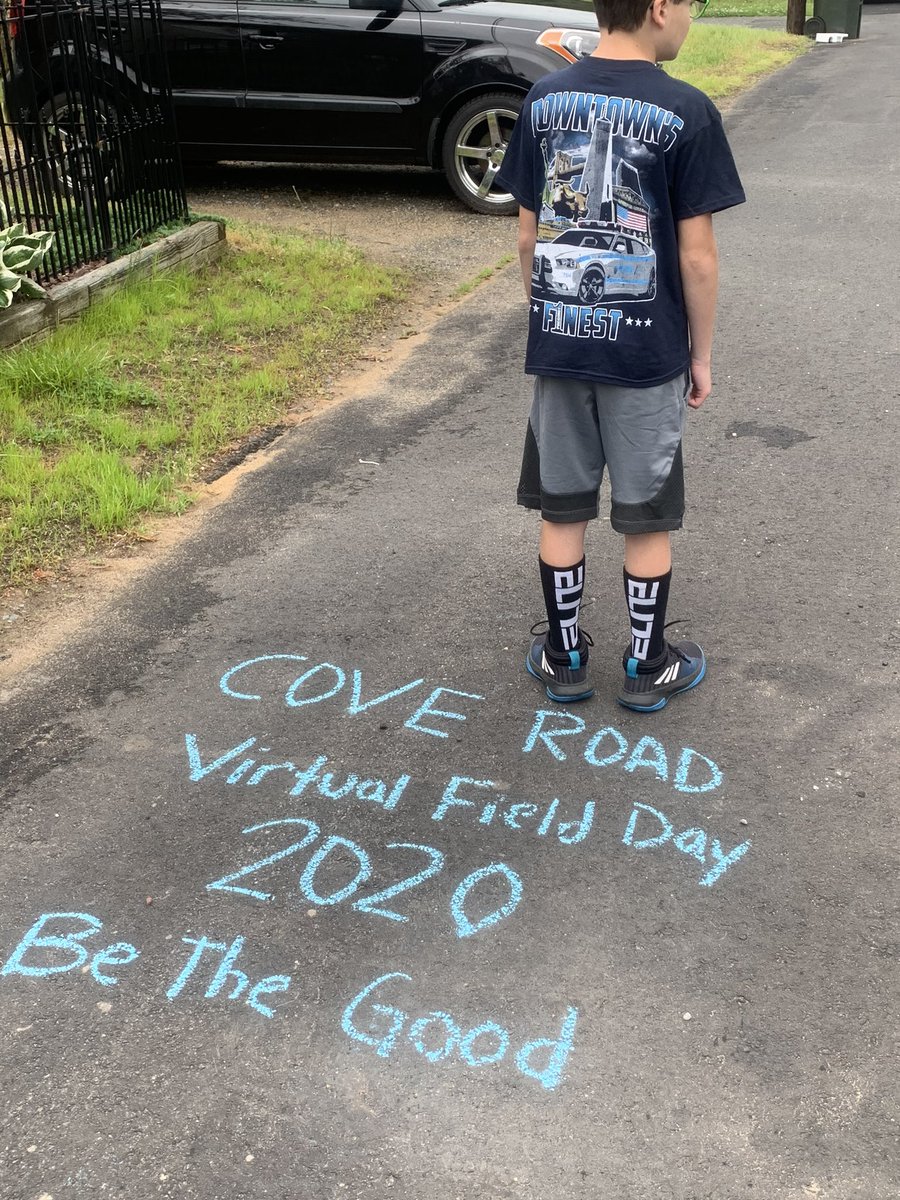 DOWNTOWN'S
FINEST
ELITE
ELITE
COVE ROAD
Virtual Field Day
2020
Be The Good